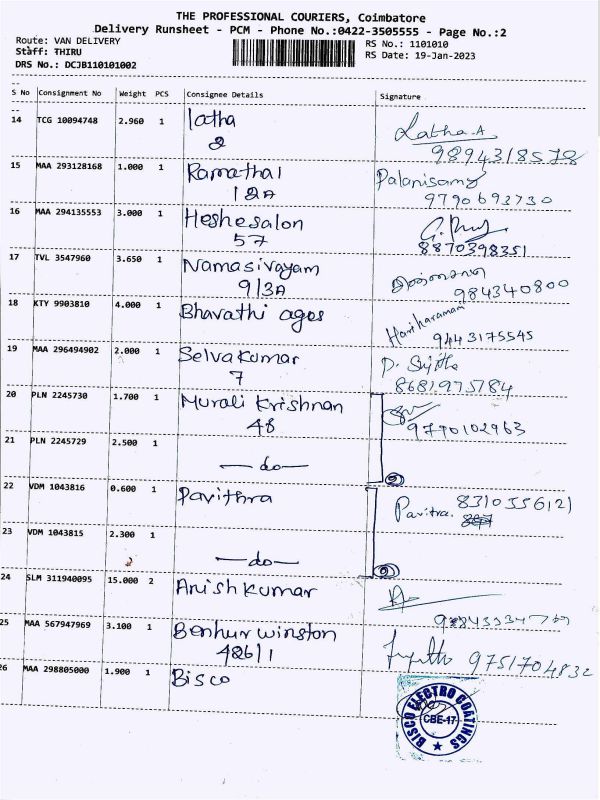 THE PROFESSIONAL COURIERS, Coimbatore
Delivery Runsheet - PCM - Phone No.:0422-3505555 - Page No.:2
Route: VAN DELIVERY
Staff: THIRU
DRS No.: DCJB110101002
RS No.: 1101010
RS Date: 19-Jan-2023
S No Consignment No Weight PCS Consignee Details Signature
14 TCG 10094748 2.960 1 latha Latha.A
2 9894318578
15 MAA 293128168 1.000 1 Ramathal Palanisamy
12A 9790692730
16 MAA 294135553 3.000 1 Heshesalon
57 8870398351
17 TVL 3547960 3.650 1 Namasivayam
9/3A 984340800
18 KTY 9903810 4.000 1 Bhavathi agos Hariharaman
9443175545
19 MAA 296494902 2.000 1 Selvakumar
7 8681975784
20 PLN 2245730 1.700 1 Murali Krishnan
48 9790102963
21 PLN 2245729 2.500 1
—do—
22 VDM 1043816 0.600 1 Pavithra Pavitra. 83103556121
23 VDM 1043815 2.300 1
—do—
24 SLM 311940095 15.000 2 Anishkumar
25 MAA 567947969 3.100 1 Benhur winston
426/1 9751704832
26 MAA 298805000 1.900 1 Bisco
BISCO ELECTRO COATINGS
CBE-17